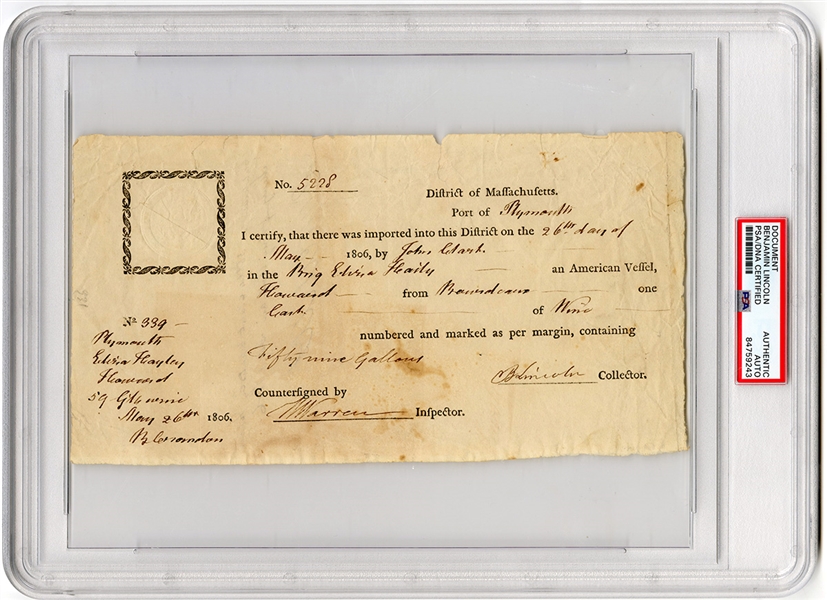 No. 5228
District of Massachusetts.
Port of Plymouth
I certify, that there was imported into this District on the 26th day of
May 1806, by John Clark
in the Brig an American Vessel,
Howard from Bourdeaux one
Cask of Wine
numbered and marked as per margin, containing
Fifty nine Gallons
B Lincoln Collector.
Countersigned by
Warren Inspector.
No 339
Plymouth
Howard
59 Gls wine
May 26th 1806.
DOCUMENT
BENJAMIN LINCOLN
PSA/DNA CERTIFIED
PSA
AUTHENTIC
AUTO
84759243